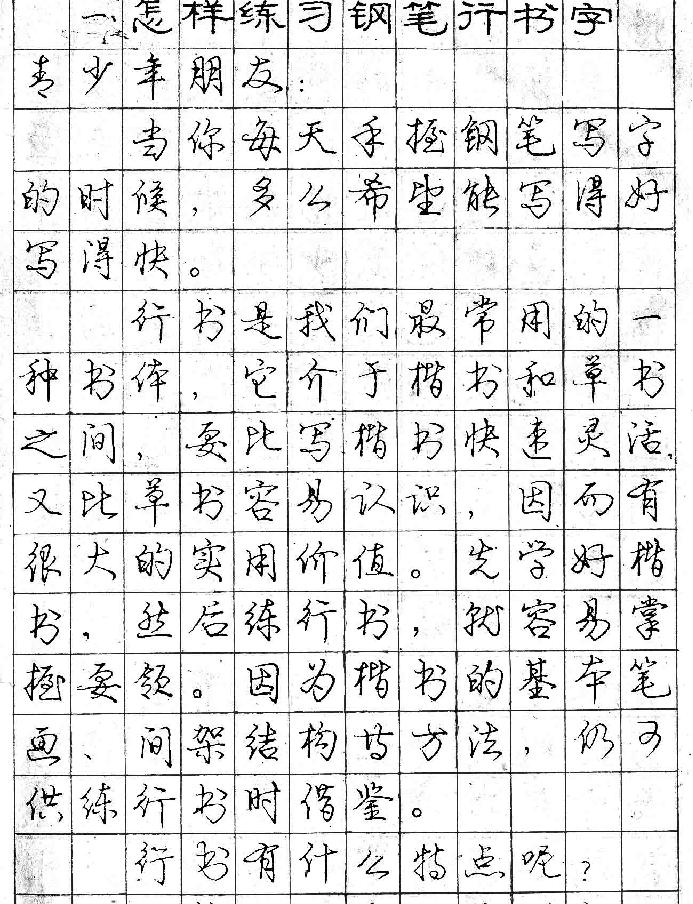 一、怎样练习钢笔行书字
青少年朋友：
当你每天手握钢笔写字
的时候，多么希望能写得好
写得快。
行书是我们最常用的一
种书体，它介于楷书和草书
之间，要比写楷书快速灵活，
又比草书容易认识，因而有
很大的实用价值。先学好楷
书，然后练行书，就容易掌
握要领。因为楷书的基本笔
画、间架结构等方法，仍可
供练行书时借鉴。
行书有什么特点呢？